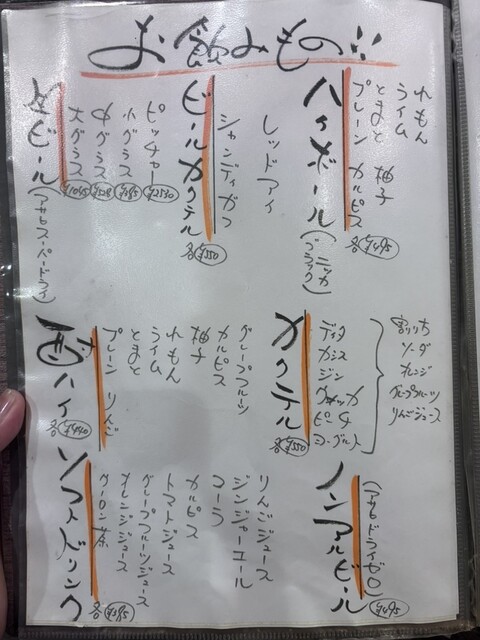 お飲みもの
ハイボール(ブラックニッカ)
プレーン カルピス
とまと 柚子
ライム
れもん
各¥495
ビールカクテル
シャンディガフ
レッドアイ
各¥550
生ビール(アサヒスーパードライ)
大グラス ¥1045
中グラス
小グラス
ピッチャー ¥2530
カクテル
ディタ
カシス
ジン
ウォッカ
ピーチ
ヨーグルト
各¥550
割りもの
ソーダ
オレンジ
グレープフルーツ
りんごジュース
酎ハイ
プレーン りんご
とまと
ライム
れもん
柚子
カルピス
グレープフルーツ
各¥440
ノンアルビール
(アサヒドライゼロ)
¥495
ソフトドリンク
ウーロン茶
オレンジジュース
グレープフルーツジュース
トマトジュース
カルピス
コーラ
ジンジャーエール
りんごジュース
各